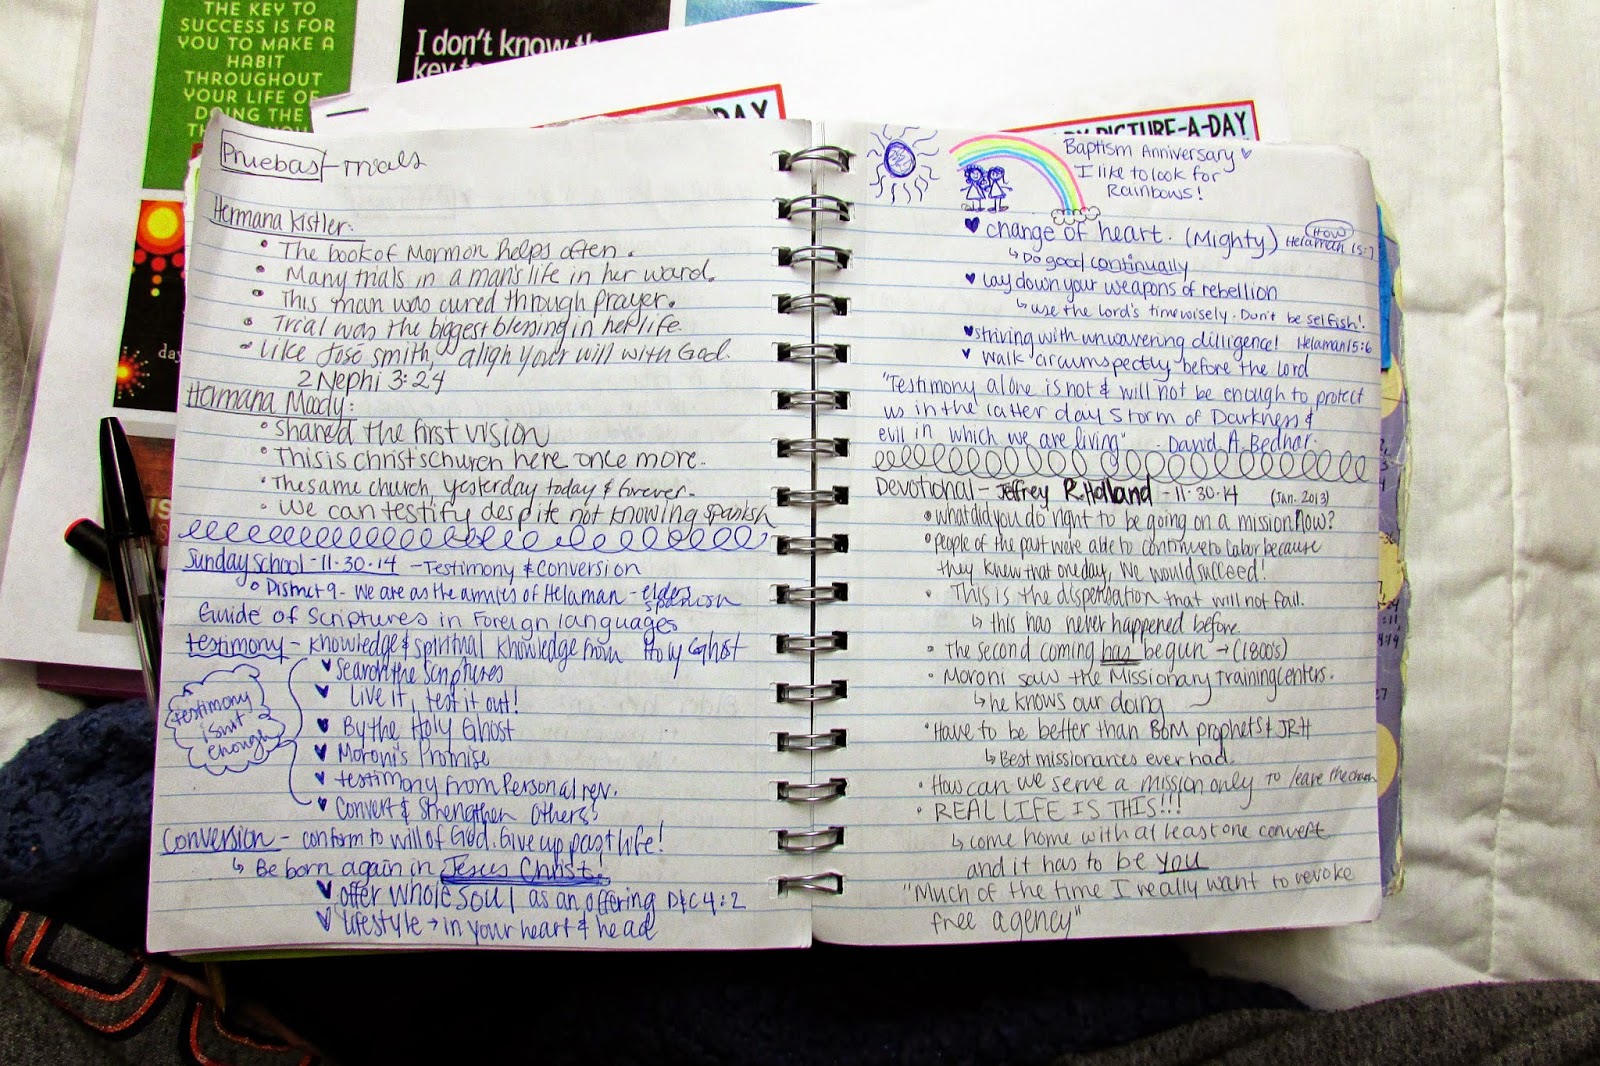 THE KEY TO
SUCCESS IS FOR
YOU TO MAKE A
HABIT
THROUGHOUT
YOUR LIFE OF
DOING THE
I don't know the
key to
day
US
DAY
PICTURE-A-DAY
Pruebas - trials
Hermana Kistler:
• The book of Mormon helps often.
• Many trials in a man's life in her ward.
• This man was cured through prayer.
• Trial was the biggest blessing in her life.
• Like José Smith, align your will with God.
2 Nephi 3:24
Hermana Moody:
• Shared the first vision
• This is christs church here once more.
• The same church, yesterday today & forever.
• We can testify despite not knowing spanish
Sunday school - 11·30·14 - Testimony & Conversion
• District 9 - We are as the armies of Helaman - elders spanish
Guide of Scriptures in Foreign languages
testimony - knowledge & spiritual knowledge from Holy Ghost
♥ Search the Scriptures
♥ Live it, test it out!
♥ By the Holy Ghost
♥ Moroni's Promise
♥ testimony from Personal rev.
♥ Convert & strengthen others
testimony
isn't
enough
Conversion - conform to will of God. Give up past life!
↳ Be born again in Jesus Christ.
♥ offer whole soul as an offering D&C 4:2
♥ lifestyle → in your heart & head
Baptism Anniversary ♥
I like to look for
Rainbows!
♥ change of heart. (Mighty) HOW Helaman 15:7
↳ Do good continually
♥ lay down your weapons of rebellion
↳ use the lord's time wisely. Don't be selfish!
♥ striving with unwavering dilligence! Helaman 15:6
♥ walk circumspectly before the Lord
"Testimony alone is not & will not be enough to protect
us in the latter day storm of Darkness &
evil in which we are living" - David A. Bednar.
Devotional - Jeffrey R. Holland - 11·30·14 (Jan. 2013)
• what did you do right to be going on a mission now?
• people of the past were able to continue to labor because
they knew that one day, we would succeed!
• This is the dispensation that will not fail.
↳ this has never happened before.
• The second coming has begun → (1800's)
• Moroni saw the Missionary Training Centers.
↳ he knows our doing
• Have to be better than BoM prophets & JRH
↳ Best missionaries ever had.
• How can we serve a mission only to leave the church
• REAL LIFE IS THIS!!!
↳ come home with at least one convert
and it has to be you
"Much of the time I really want to revoke
free agency"